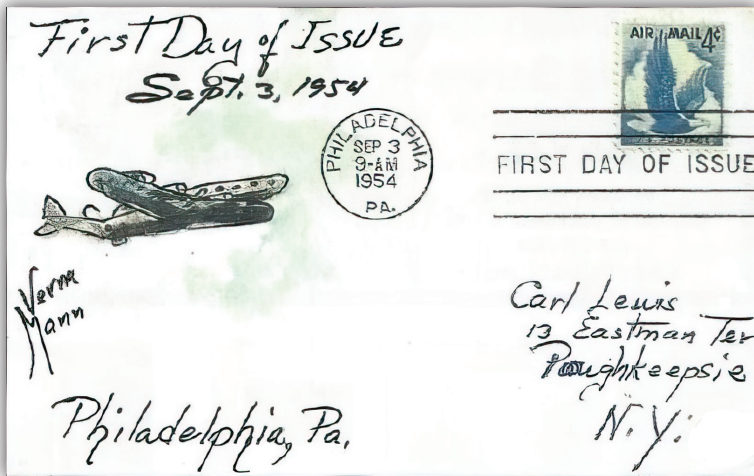 First Day of ISSUE
Sept. 3, 1954
AIR MAIL 4¢
PHILADELPHIA
SEP 3
9-AM
1954
PA.
FIRST DAY OF ISSUE
Verna
Mann
Carl Lewis
13 Eastman Ter
Poughkeepsie
N.Y.
Philadelphia, Pa.